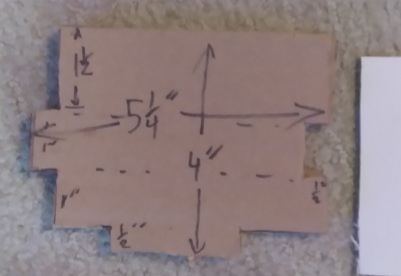 1 1/2
5 1/4"
1"
4"
1"
1/2"
1/2"